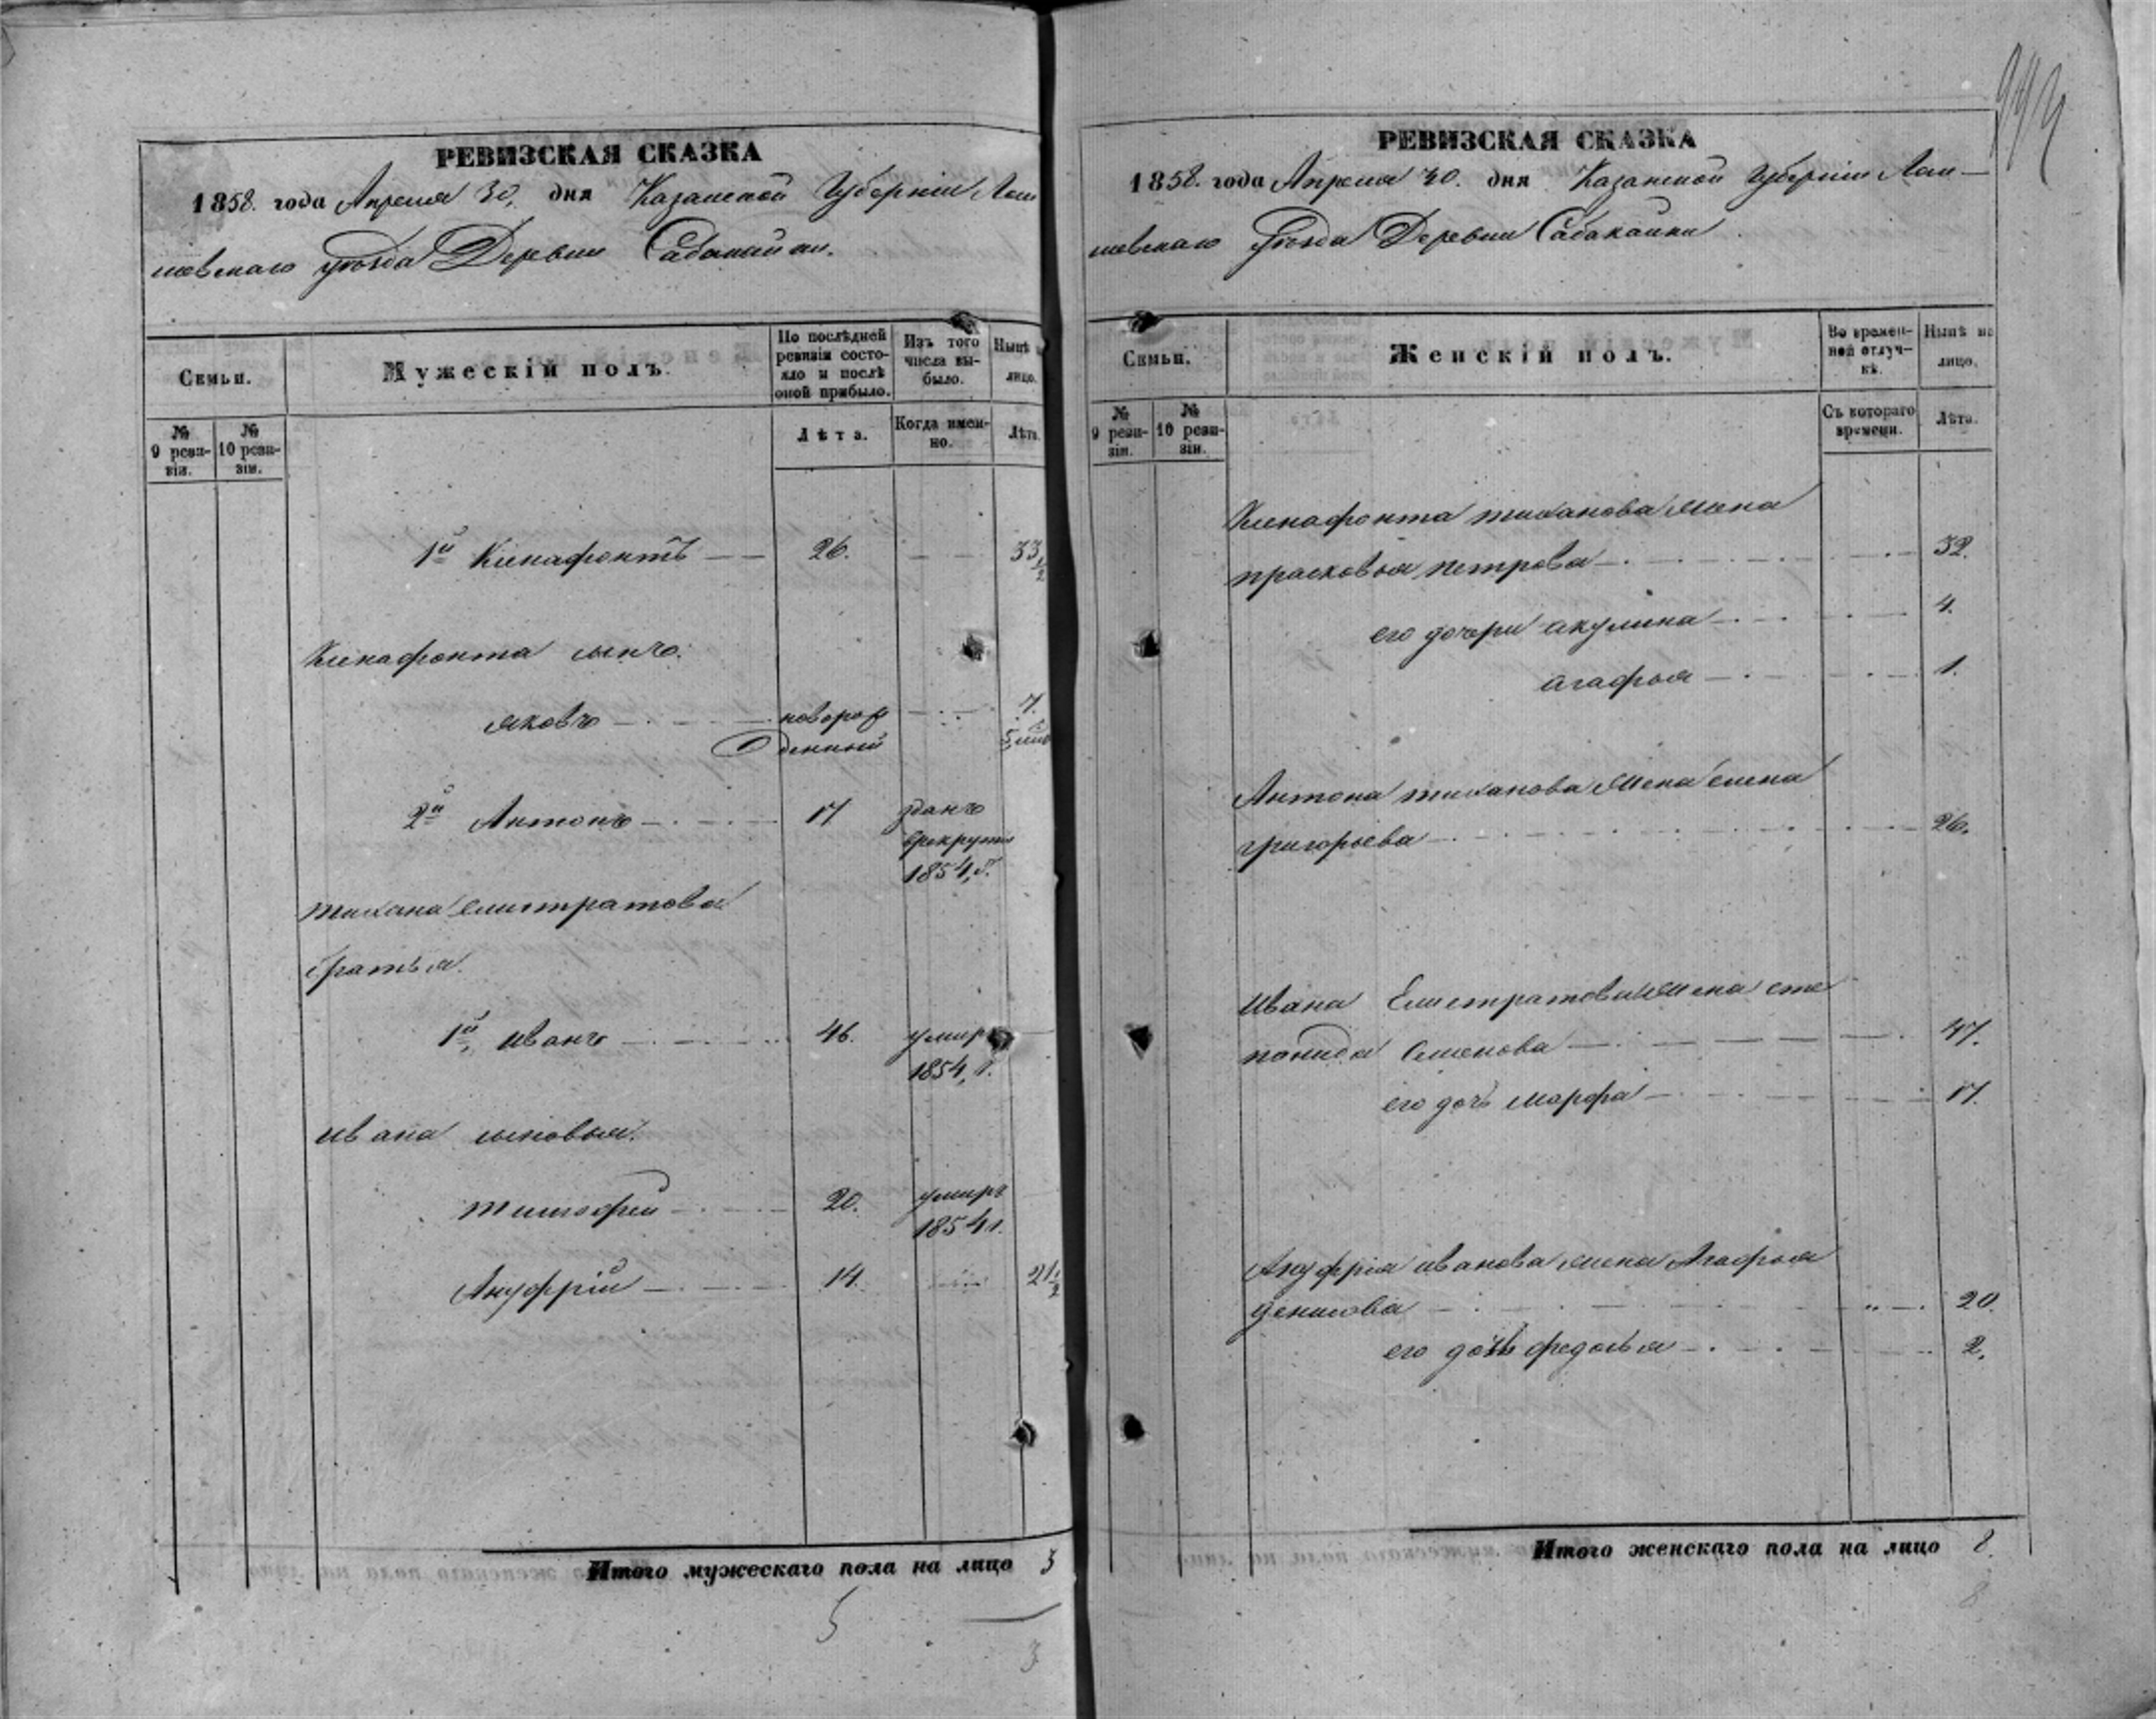 РЕВИЗСКАЯ СКАЗКА
1858. года Апреля 30, дня Казанской Губерніи Лаи
шевскаго уѣзда Деревни Сабакайки.
Семьи.
Мужескій полъ.
По послѣдней ревизіи состояло и послѣ оной прибыло.
Изъ того числа выбыло.
Нынѣ
лицо.
№ 9 ревизіи.
№ 10 ревизіи.
Лѣта.
Когда именно.
Лѣта.
1й Ксенафонтъ 26. 33 1/2
Ксенафонта сынъ:
яковъ новорож 7.
денный
2й Антонъ 17 зданъ
врекруты
1854, г.
тихана елистратова
братья.
1й, иванъ 46. умиръ
1854, г.
ивана сыновья.
тимофей 20. умиръ
1854 г.
Ануфрій 14. 21 1/2
Итого мужескаго пола на лицо 3
5
3
РЕВИЗСКАЯ СКАЗКА
1858. года Апреля 30. дня Казанской Губерніи Лаи-
шевскаго уѣзда Деревни Сабакайки.
Семьи.
Женскій полъ.
Во временной отлучкѣ.
Нынѣ на лицо.
№ 9 ревизіи.
№ 10 ревизіи.
Съ котораго времени.
Лѣта.
Ксенафонта тиханова жена
прасковья петрова 32.
его дочери акулина 4.
агафья 1.
Антона тиханова жена елена
григорьева 26.
ивана Елистратова жена сте
панида семенова 47.
его дочь марфа 17.
Ануфрія иванова жена Агафья
денисова 20.
его дочь федосья 2.
Итого женскаго пола на лицо 8.
8